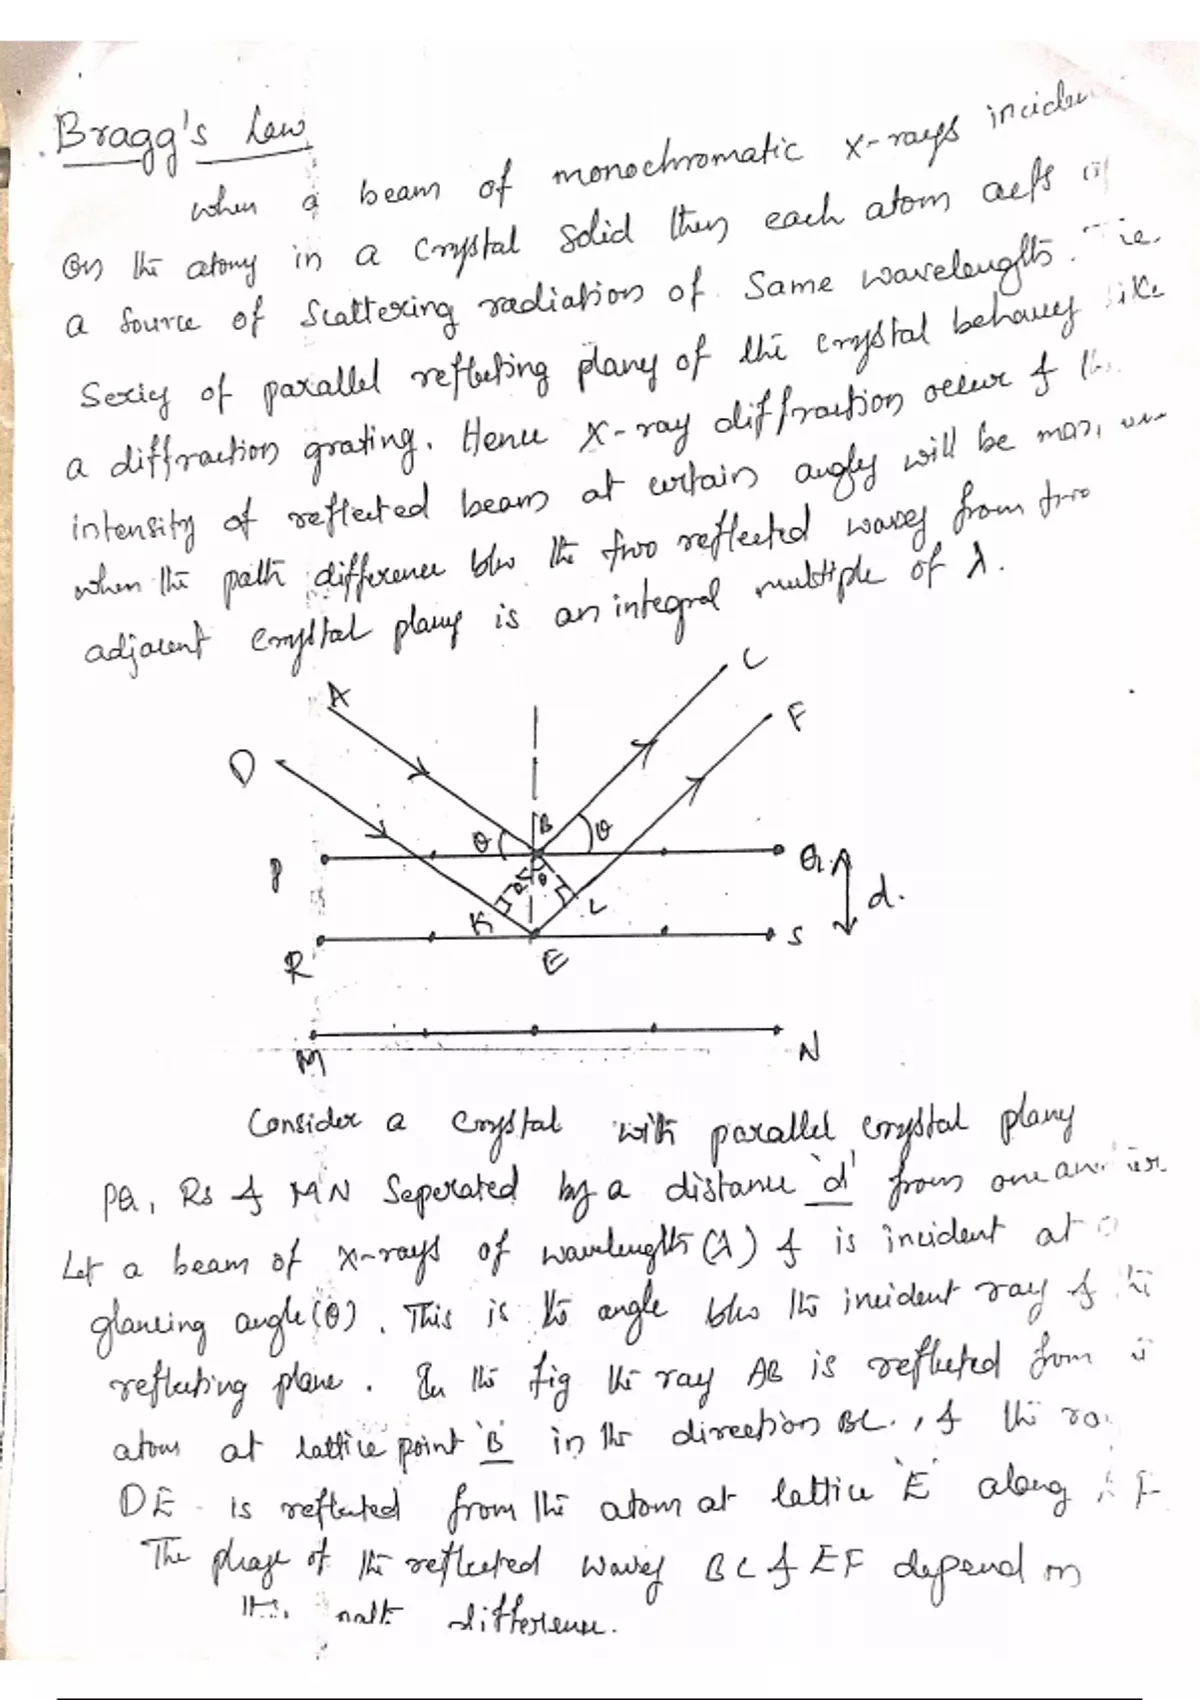 Bragg's Law
when a beam of monochromatic X-rays
on the atoms in a Crystal Solid then each atom acts
a source of Scattering radiation of Same wavelength. ie.
Series of parallel reflecting planes of the crystal behaves like
a diffraction grating. Hence X-ray diffraction occur &
intensity of reflected beam at certain angles will be
when the path difference b/w the two reflected waves from two
adjacent crystal planes is an integral multiple of λ.
A
C
D
F
B
θ
θ
P
Q
d.
θ
θ
K
L
R
E
S
M
N
Consider a crystal with parallel crystal planes
PQ, RS & MN Seperated by a distance 'd' from one
Let a beam of X-rays of wavelength (λ) & is incident at
glancing angle (θ). This is the angle b/w the incident ray &
reflecting plane. In the fig the ray AB is reflected from
atom at lattice point 'B' in the direction BC., & the
DE is reflected from the atom at lattice 'E' along
The phase of the reflected waves BC & EF depend on
the path difference.